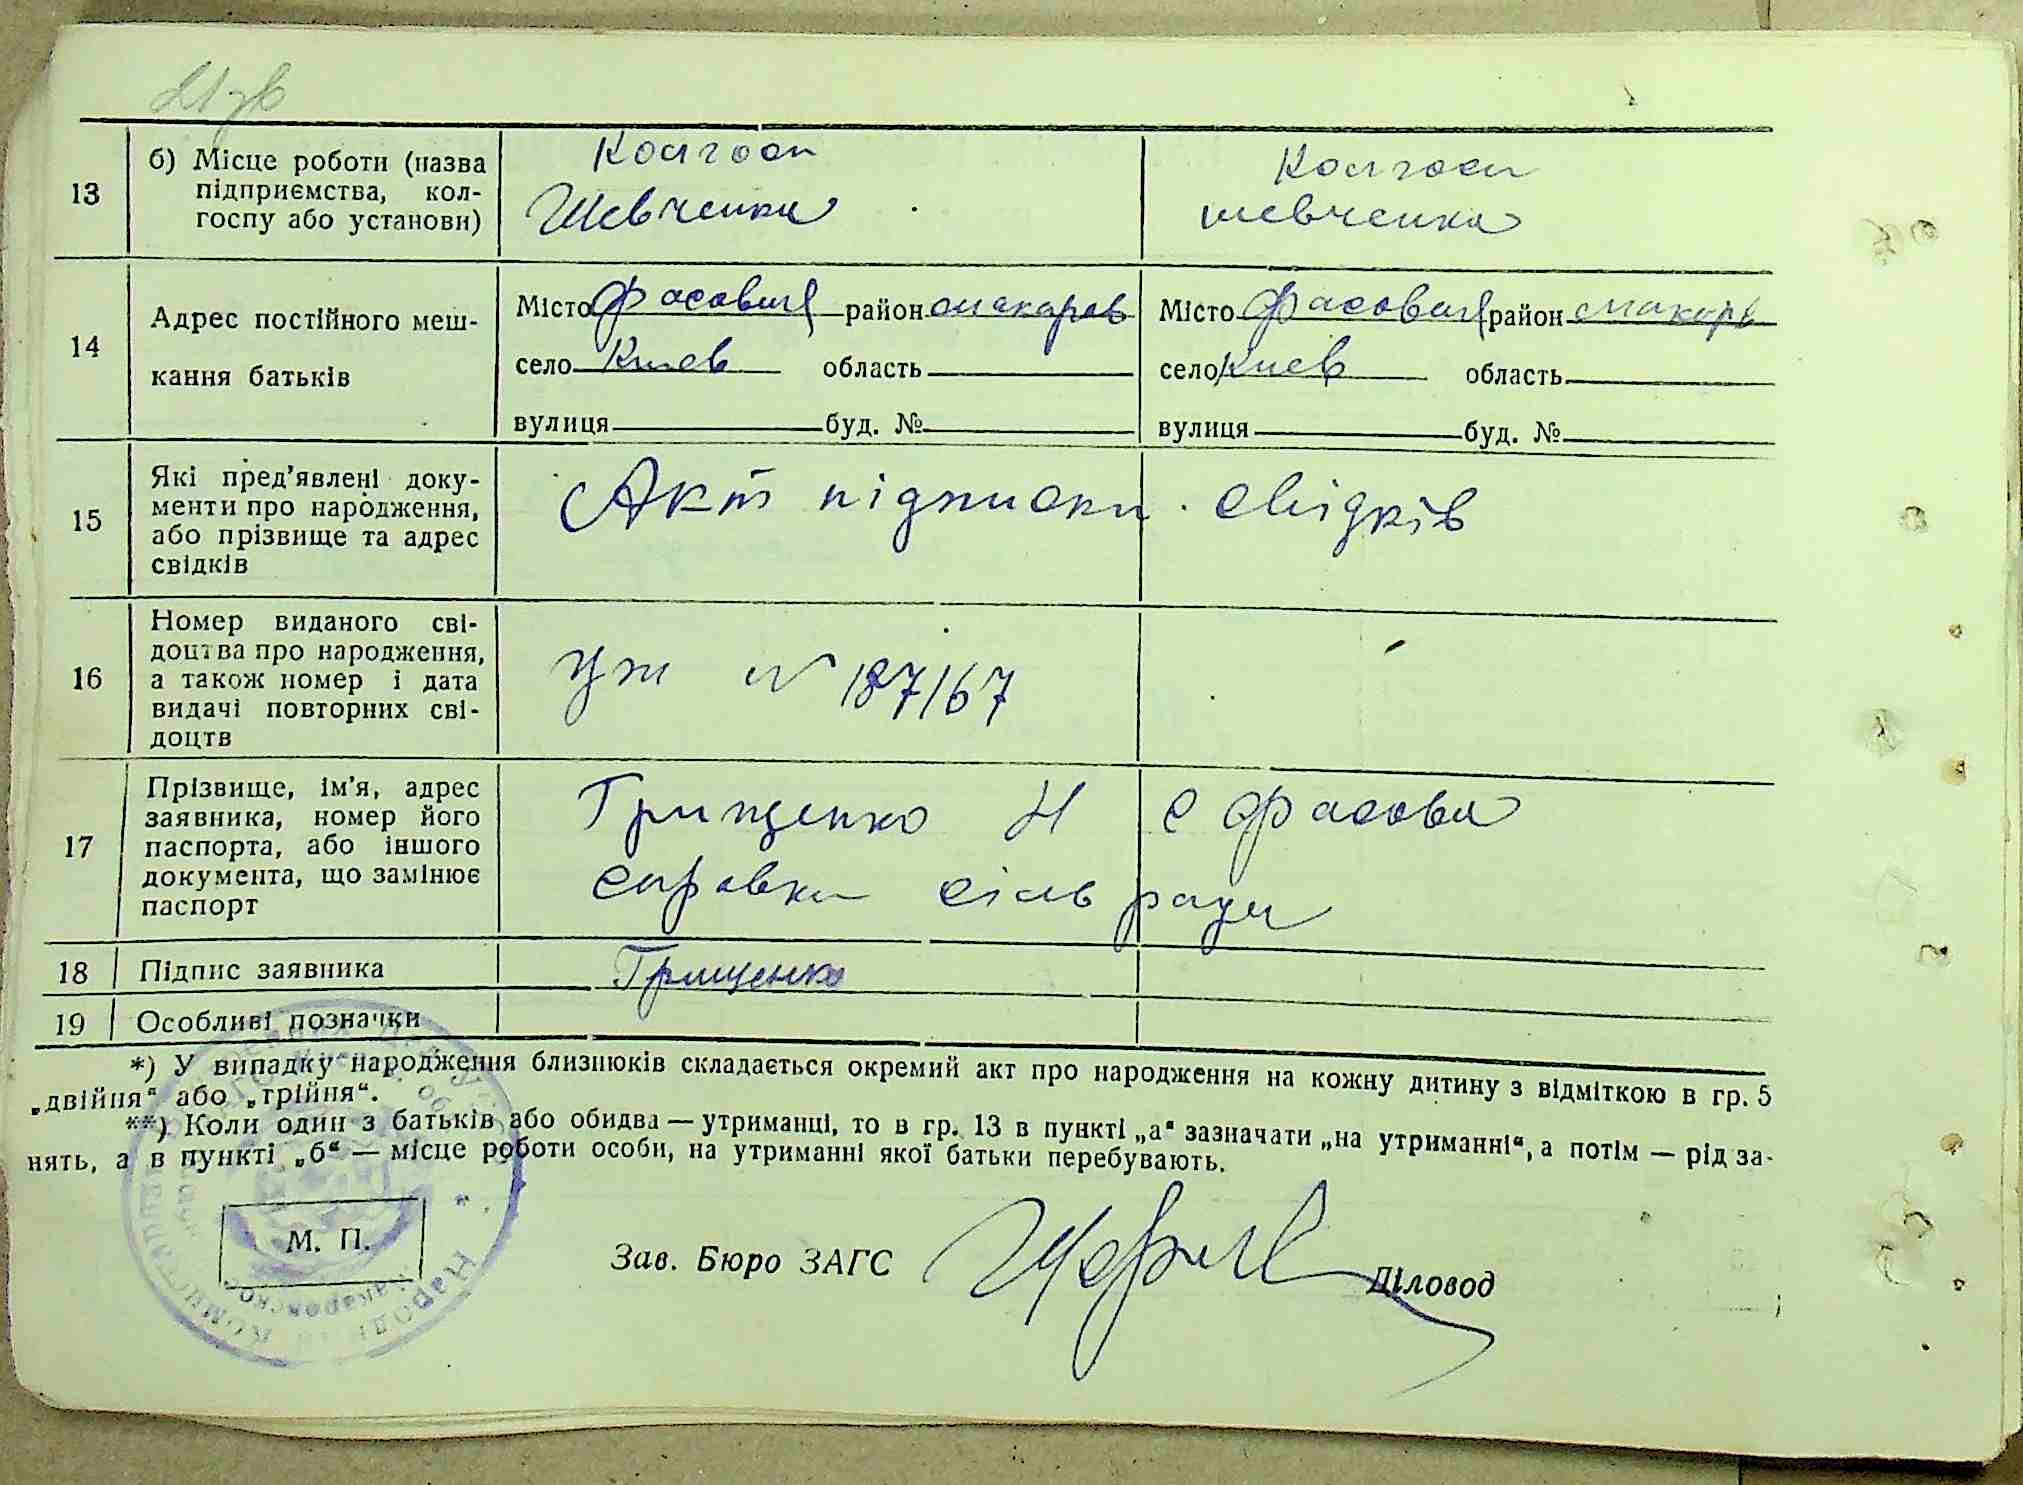 13 б) Місце роботи (назва підприємства, кол-
госпу або установи)
Колгосп
Шевченка
Колгосп
шевченка
14 Адрес постійного меш-
кання батьків
Місто Фасовая район макаров
село Киев область
вулиця буд. №
Місто Фасовая район макаров
село Киев область
вулиця буд. №
15 Які пред'явлені доку-
менти про народження,
або прізвище та адрес
свідків
Акт підписки свідків
16 Номер виданого сві-
доцтва про народження,
а також номер і дата
видачі повторних сві-
доцтв
УЖ № 187167
17 Прізвище, ім'я, адрес
заявника, номер його
паспорта, або іншого
документа, що замінює
паспорт
Грищенко Н с Фасова
справка сільради
18 Підпис заявника
Грищенко
19 Особливі позначки
*) У випадку народження близнюків складається окремий акт про народження на кожну дитину з відміткою в гр. 5
„двійня“ або „трійня“.
**) Коли один з батьків або обидва — утриманці, то в гр. 13 в пункті „а“ зазначати „на утриманні“, а потім — рід за-
нять, а в пункті „б“ — місце роботи особи, на утриманні якої батьки перебувають.
М. П.
Зав. Бюро ЗАГС
Діловод